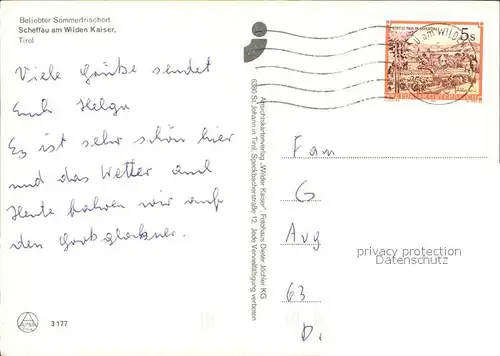 Beliebter Sommerfrischort
Scheffau am Wilden Kaiser,
Tirol
Viele Grüße sendet
Euch Helga
Es ist sehr schön hier
und das Wetter auch
Heute fahren wir auf
den Großglockner.
3177
Ansichtskartenverlag „Wilder Kaiser“, Fotohaus Dieter Jöchler KG
6380 St. Johann in Tirol, Speckbacherstraße 12. Jede Vervielfältigung verboten
5s
AM WILD
Fam
G
Aug
63
D.
privacy protection
Datenschutz